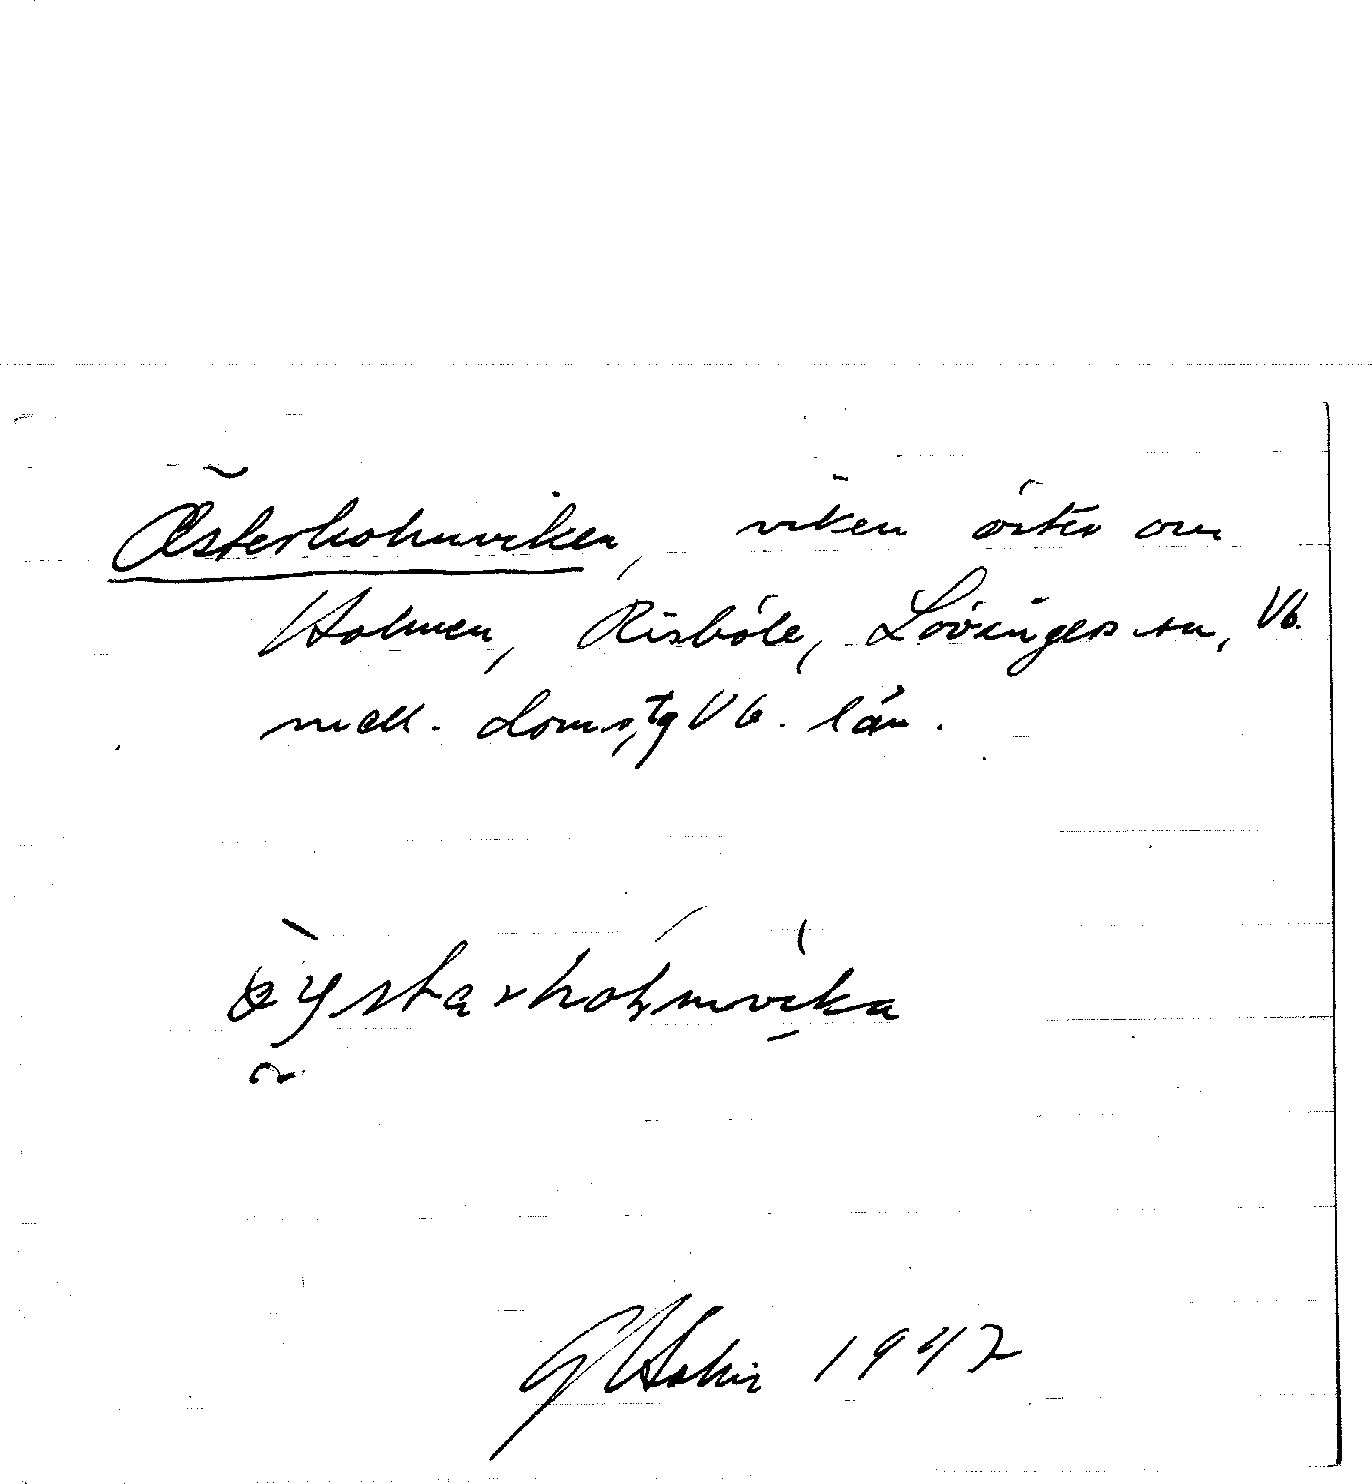 Österholmviken, viken öster om
Holmen, Risböle, Lövångers sn, Vb.
mell. doms,tg Vb. län.
G Holm 1947